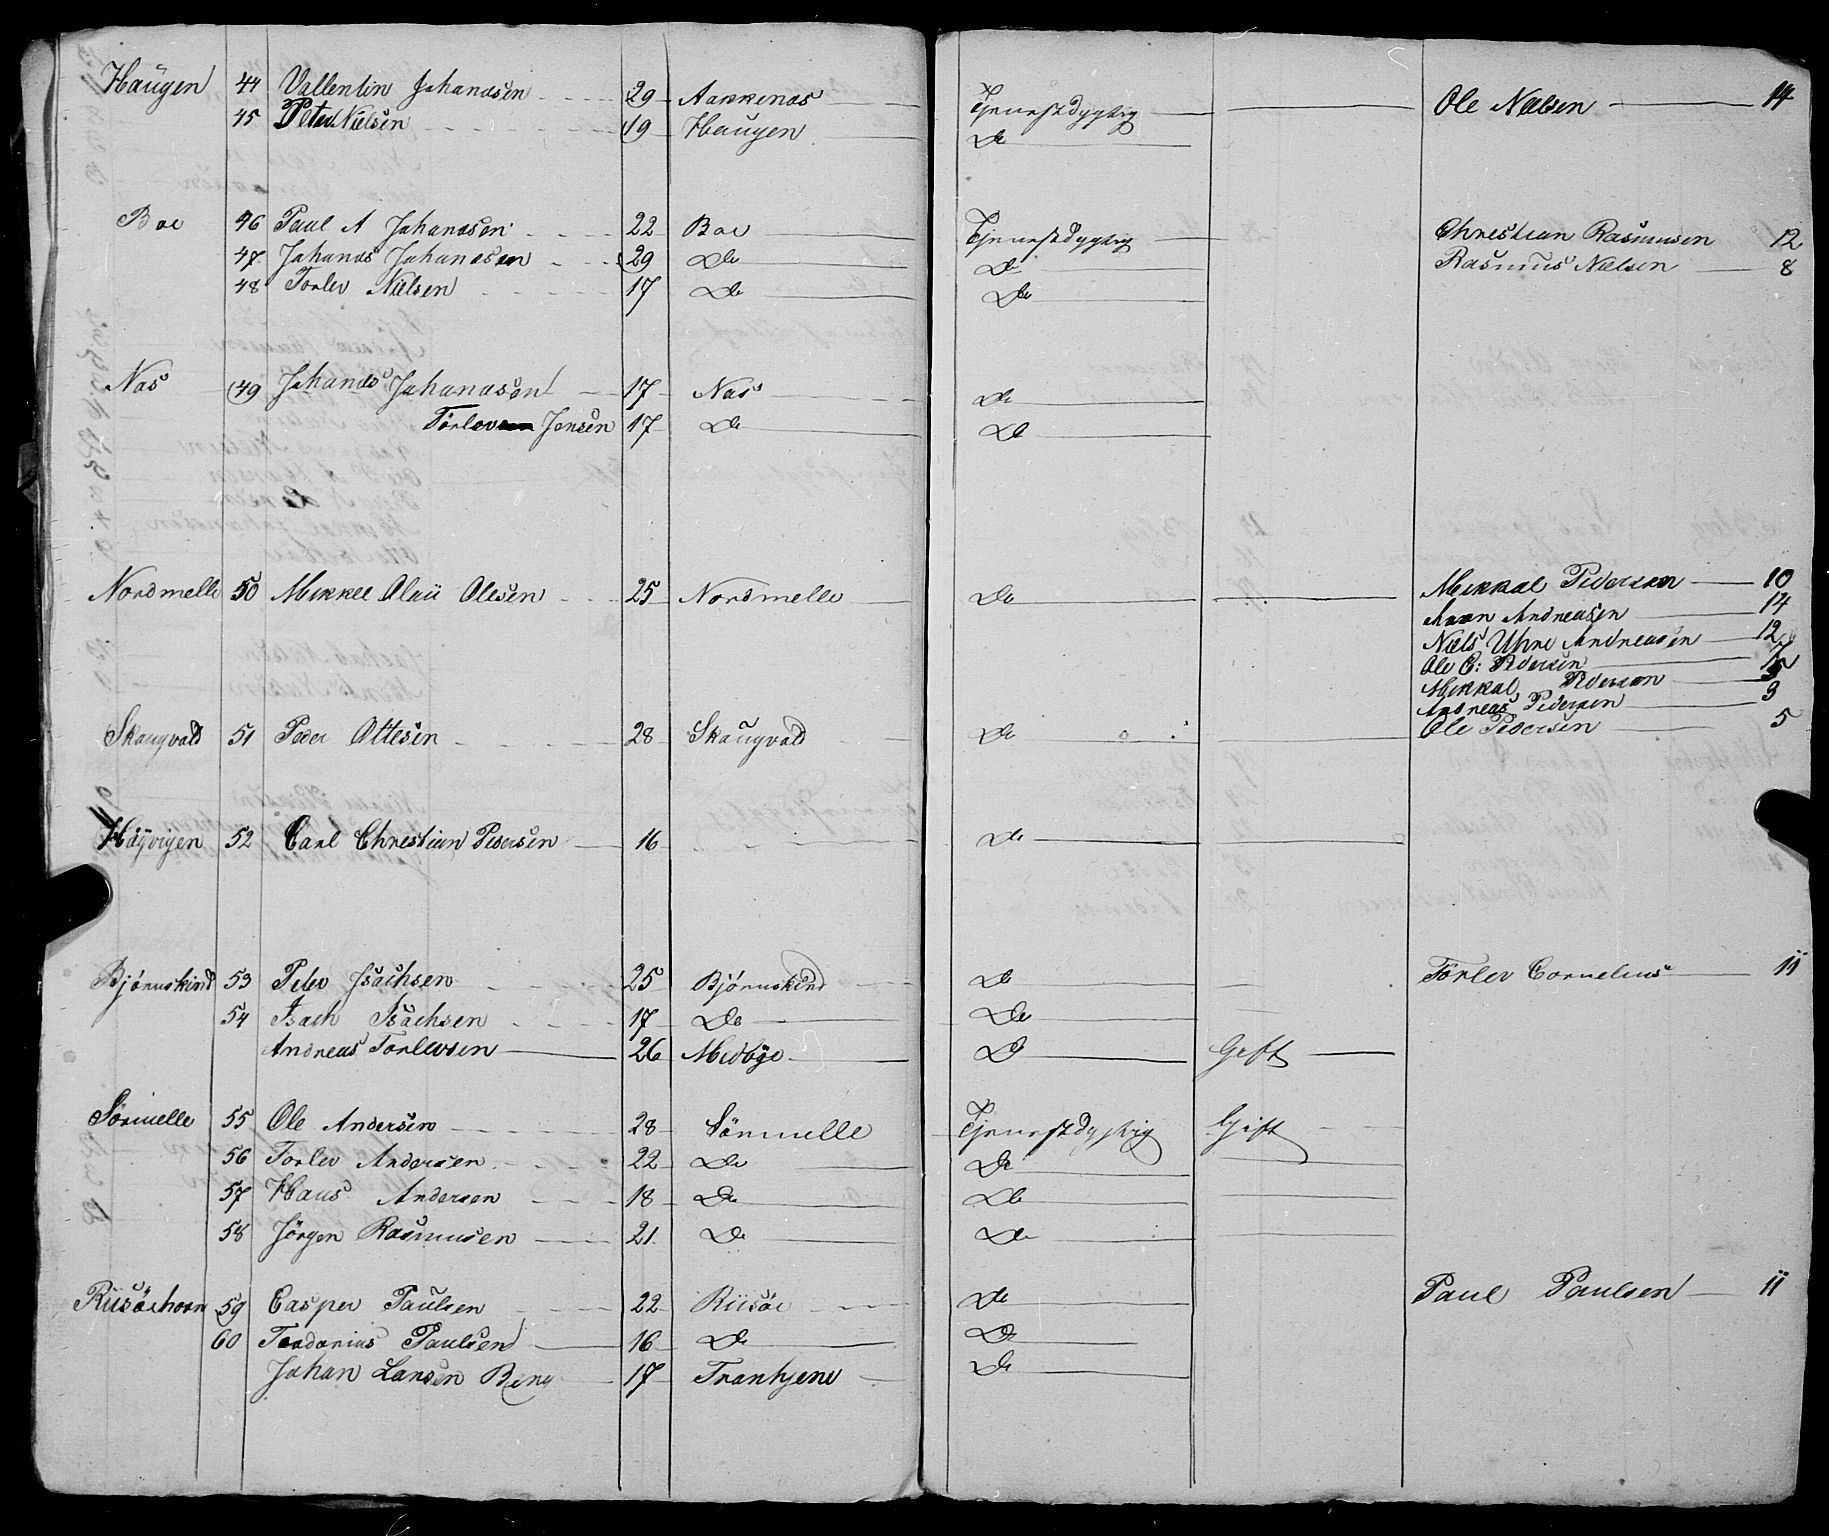 Haugen 44 Vallentin Johanasen 29 Aakkenas Tjenestdygtig Ole Nielsen 14
45 Peter Nielsen 19 Haugen Do
Boe 46 Paul A Johanasen 22 Boe Tjenestdygtig Christian Rasmusen 12
47 Johanas Johanasen 29 Do Do Rasmus Nielsen 8
48 Torlev Nielsen 17 Do Do
Nas 49 Johanas Johanasen 17 Nas Do
Torlev Jensen 17 Do Do
Nordmelle 50 Mekkel Olaii Olesen 25 Nordmelle Do Mekkal Pedersen 10
Andreasen 14
Niels Uhre Andreasen 12
Ole C: Pedersen
Mekkal Pedersen
Andreas Pedersen 3
Skaugvold 51 Peder Ottesen 28 Skaugvold Do Ole Pedersen 5
Høyvigen 52 Carl Chrestian Pedersen 16 " Do
Bjørnskind 53 Peter Isachsen 25 Bjørnskind Do Torlev Cornelius 11
54 Isach Isachsen 17 Do Do
Andreas Torlevsen 26 Medbye Do Gift
Sörmelle 55 Ole Andersen 28 Sörmelle Tjenestdygtig Gift
56 Torlev Andersen 22 Do Do
57 Hans Andersen 18 Do Do
58 Jörgen Rasmusen 21 Do Do
Riisöehavn 59 Casper Paulsen 22 Riisöe Do Paul Paulsen 11
60 Paulsen 16 Do Do
Johan Larsen Berg 17 Do